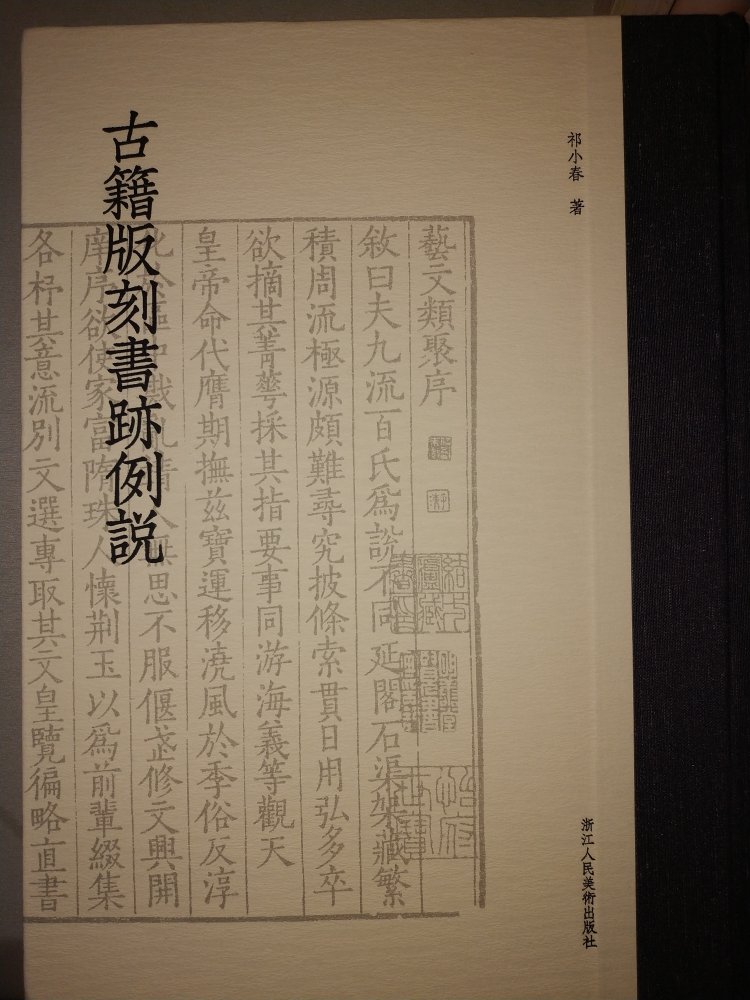 祁小春 著
浙江人民美術出版社
藝文類聚序
敘曰夫九流百氏爲說不同延閣石渠架藏繁
積周流極源頗難尋究披條索貫日用弘多卒
欲摘其菁華採其指要事同游海義等觀天
皇帝命代膺期撫茲寶運移澆風於季俗反淳
化於區中戡亂靖人無思不服偃武修文興開
庠序欲使家富隋珠人懷荆玉以爲前輩綴集
古籍版刻書跡例説
各杼其意流別文選專取其文皇覽徧略直書